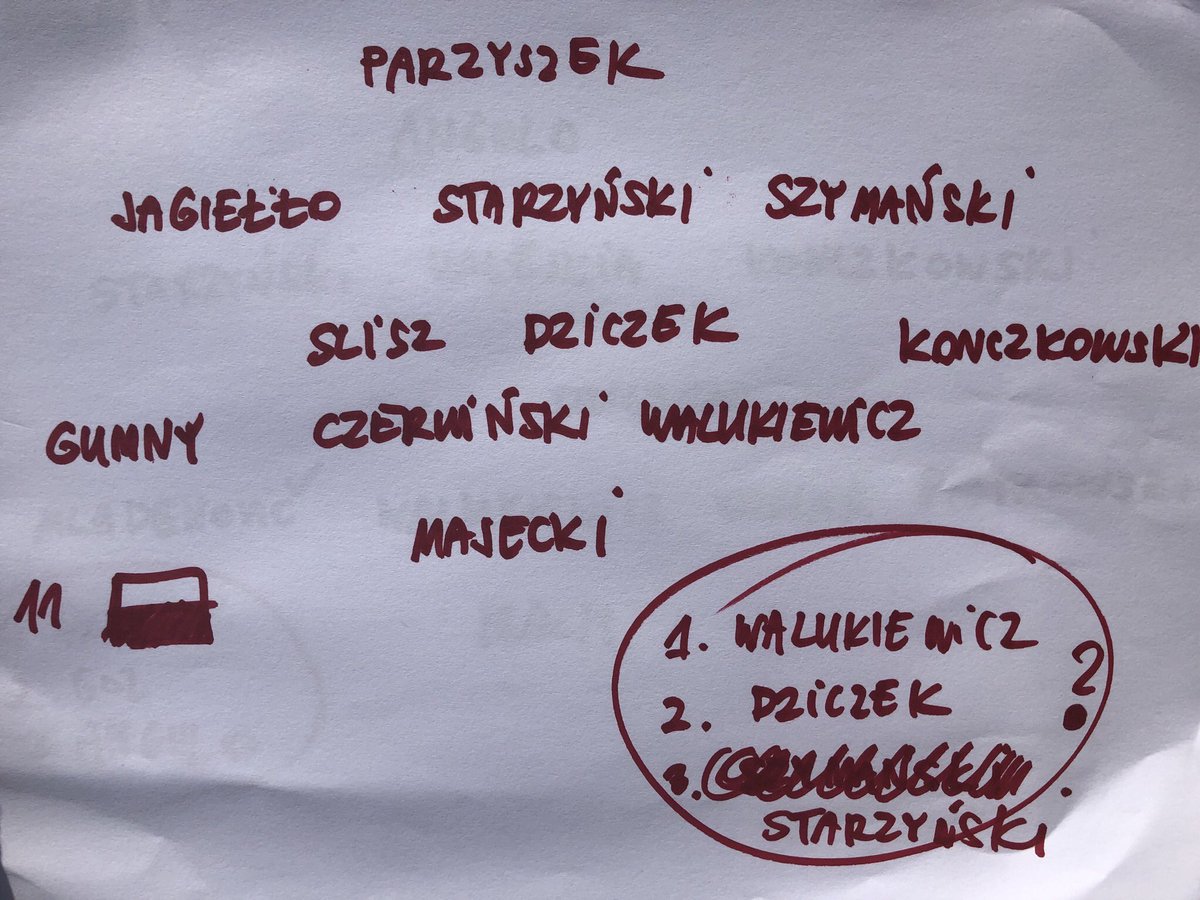 PARZYSZEK
JAGIEŁŁO STARZYŃSKI SZYMAŃSKI
SLISZ DZICZEK KONCZKOWSKI
GUMNY CZERWIŃSKI WALUKIEWICZ
MAJECKI
11
1. WALUKIEWICZ
2. DZICZEK ?
3.
STARZYŃSKI